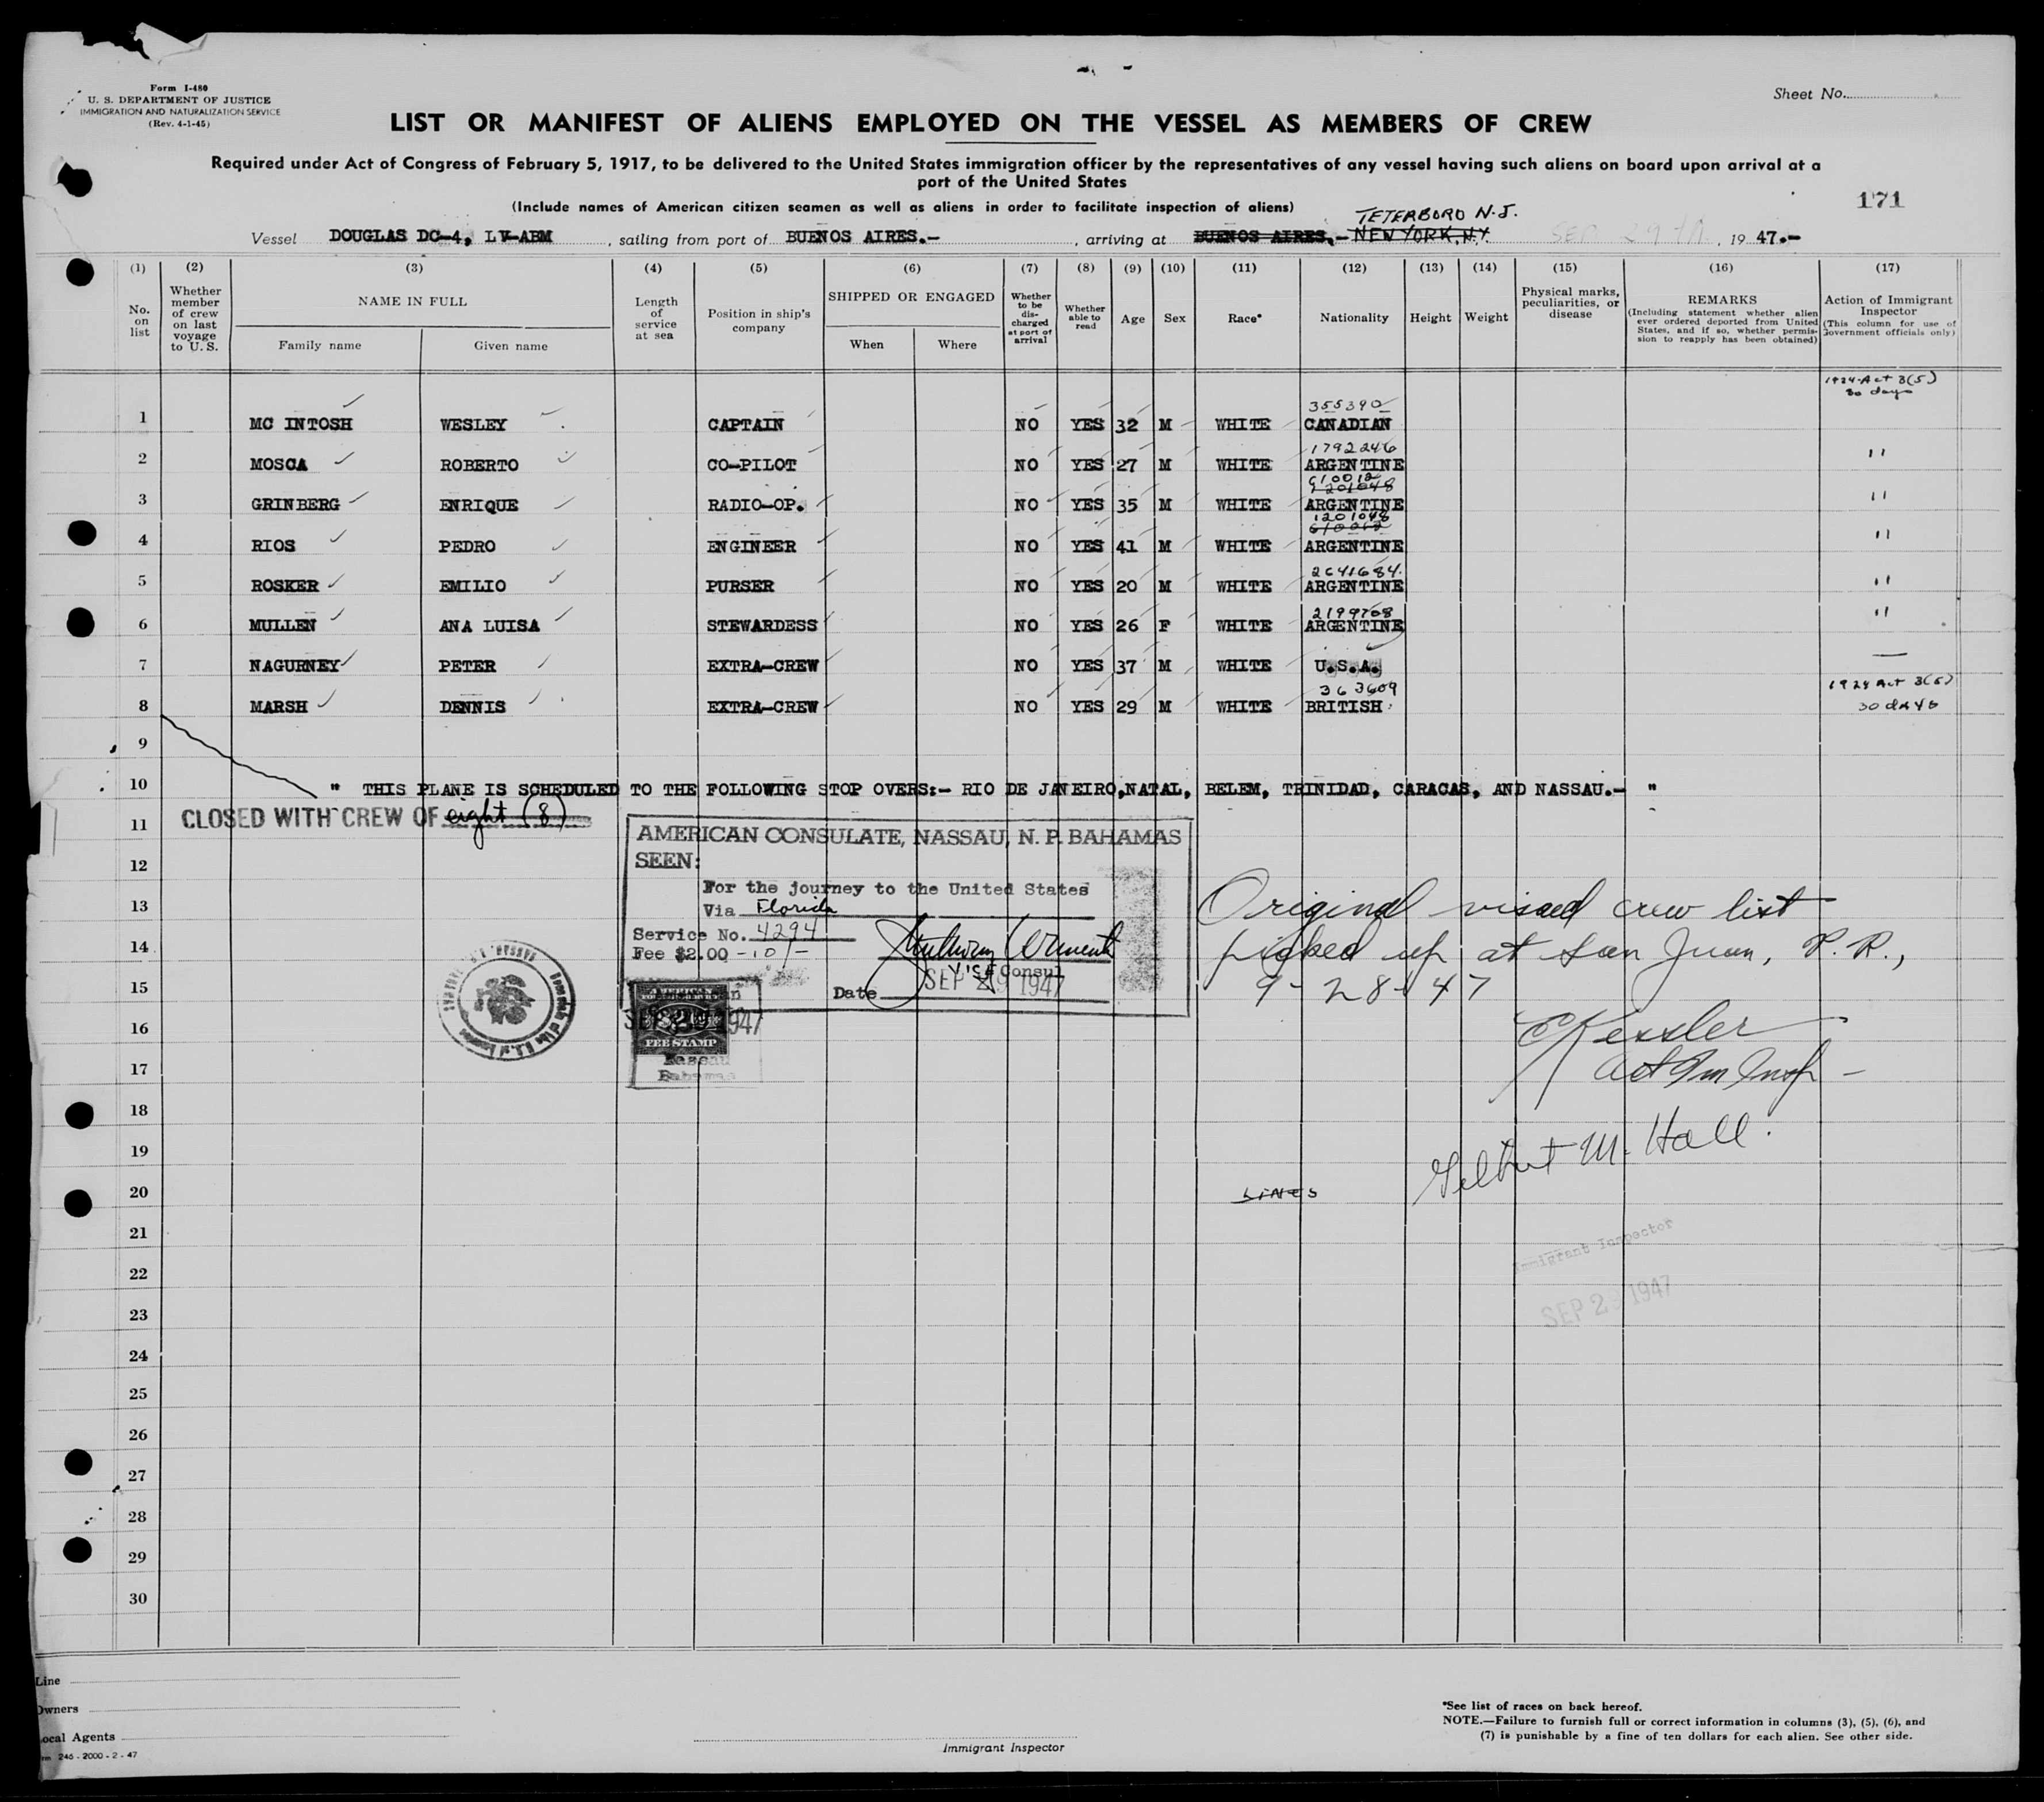 Form I-480
U. S. DEPARTMENT OF JUSTICE
IMMIGRATION AND NATURALIZATION SERVICE
(Rev. 4-1-45)
Sheet No.
LIST OR MANIFEST OF ALIENS EMPLOYED ON THE VESSEL AS MEMBERS OF CREW
Required under Act of Congress of February 5, 1917, to be delivered to the United States immigration officer by the representatives of any vessel having such aliens on board upon arrival at a
port of the United States
171
(Include names of American citizen seamen as well as aliens in order to facilitate inspection of aliens)
TETERBORO N.J.
Vessel DOUGLAS DC-4, LV-ABM, sailing from port of BUENOS AIRES.-, arriving at BUENOS AIRES,- NEW YORK, N.Y. SEP 29, 1947.-
(1) (2) (3) (4) (5) (6) (7) (8) (9) (10) (11) (12) (13) (14) (15) (16) (17)
No. on list
Whether member of crew on last voyage to U. S.
NAME IN FULL
Family name Given name
Length of service at sea
Position in ship's company
SHIPPED OR ENGAGED
When Where
Whether to be discharged at port of arrival
Whether able to read
Age
Sex
Race*
Nationality
Height
Weight
Physical marks, peculiarities, or disease
REMARKS
(Including statement whether alien ever ordered deported from United States, and if so, whether permission to reapply has been obtained)
Action of Immigrant Inspector
(This column for use of Government officials only)
1924 Act 3(5)
30 days
355390
1 MC INTOSH WESLEY CAPTAIN NO YES 32 M WHITE CANADIAN
1792246
2 MOSCA ROBERTO CO-PILOT NO YES 27 M WHITE ARGENTINE "
610012
1201048
3 GRINBERG ENRIQUE RADIO-OP. NO YES 35 M WHITE ARGENTINE "
1201048
610012
4 RIOS PEDRO ENGINEER NO YES 41 M WHITE ARGENTINE "
2641684.
5 ROSKER EMILIO PURSER NO YES 20 M WHITE ARGENTINE "
2199708
6 MULLEN ANA LUISA STEWARDESS NO YES 26 F WHITE ARGENTINE "
7 NAGURNEY PETER EXTRA-CREW NO YES 37 M WHITE U.S.A. —
363609 1924 Act 3(5)
8 MARSH DENNIS EXTRA-CREW NO YES 29 M WHITE BRITISH 30 days
9
10 " THIS PLANE IS SCHEDULED TO THE FOLLOWING STOP OVERS:- RIO DE JANEIRO,NATAL, BELEM, TRINIDAD, CARACAS, AND NASSAU.- "
11 CLOSED WITH CREW OF eight (8)
AMERICAN CONSULATE, NASSAU, N. P. BAHAMAS
SEEN:
12
For the journey to the United States
13 Via Florida
Service No. 4294
14 Fee $2.00 - 10/-
Vice Consul
15 Date SEP 29 1947
Original visaed crew list
picked up at San Juan, P. R.,
9-28-47
SEP 29 1947
FEE STAMP
Nassau
Bahamas
16
E Kessler
17
Act Im Insp -
18
19
Gilbert M. Hall.
20
LINES
21
Immigrant Inspector
22
23
SEP 29 1947
24
25
26
27
28
29
30
Line
Owners
Local Agents
246 - 2000 - 2 - 47
Immigrant Inspector
*See list of races on back hereof.
NOTE.—Failure to furnish full or correct information in columns (3), (5), (6), and
(7) is punishable by a fine of ten dollars for each alien. See other side.